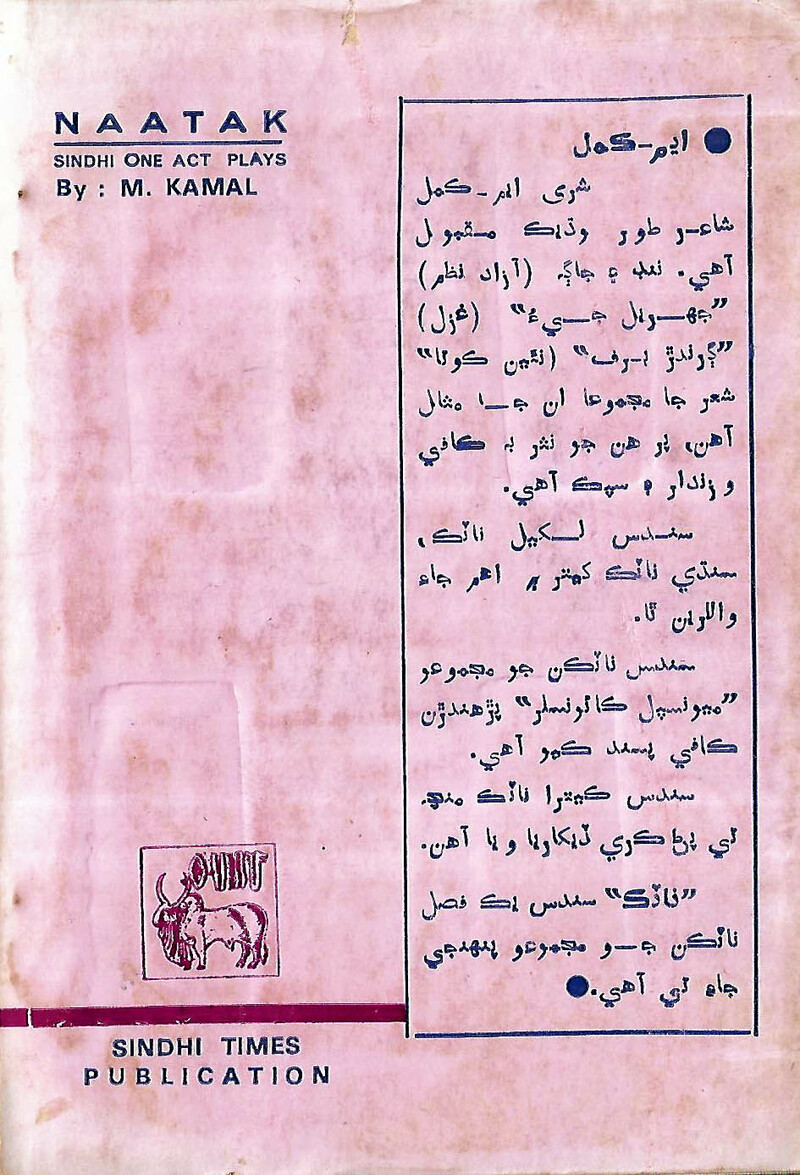 NAATAK
SINDHI ONE ACT PLAYS
By : M. KAMAL
● ايم-ڪمل
شري ايم-ڪمل
شاعر طور وڌيڪ مقبول
آهي. ننڊ ۽ جاڳ، (آزاد نظم)
”جھريل جيءُ“ (غزل)
”ڳرندڙ برف“ (نئين ڪوتا“
شعر جا مجموعا ان جا مثال
آهن، پر هن جو نثر بہ ڪافي
وزندار ۽ سپڪ آهي.
سندس لکيل ناٽڪ،
سنڌي ناٽڪ کيتر ۾ اهم جاءِ
والارين ٿا.
سندس ناٽڪن جو مجموعو
”ميونسپل ڪائونسلر“ پڙهندڙن
ڪافي پسند ڪيو آهي.
سندس ڪيترا ناٽڪ منچ
تي پڻ ڪري ڏيکاريا ويا آهن.
”ناٽڪ“ سندس يڪ فصل
ناٽڪن جو مجموعو پنهنجي
جاءِ تي آهي.●
SINDHI TIMES
PUBLICATION